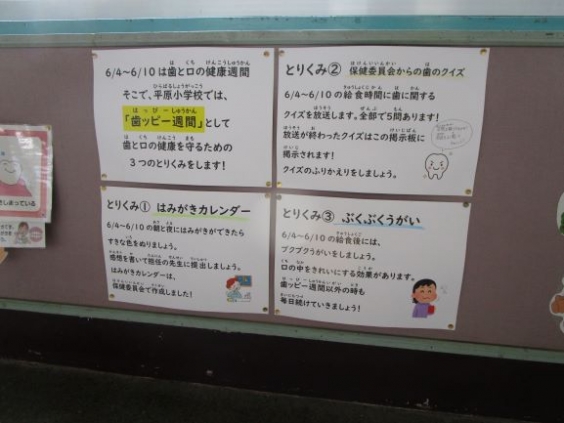 6/4～6/10は歯と口の健康週間
そこで、平原小学校では、
「歯ッピー週間」として
歯と口の健康を守るための
3つのとりくみをします！
とりくみ② 保健委員会からの歯のクイズ
6/4～6/10の給食時間に歯に関する
クイズを放送します。全部で5問あります！
放送が終わったクイズはこの掲示板に
掲示されます！
クイズのふりかえりをしましょう。
とりくみ① はみがきカレンダー
6/4～6/10の朝と夜にはみがきができたら
すきな色をぬりましょう。
感想を書いて担任の先生に提出しましょう。
はみがきカレンダーは、
保健委員会で作成しました！
とりくみ③ ぶくぶくうがい
6/4～6/10の給食後には、
ブクブクうがいをしましょう。
口の中をきれいにする効果があります。
歯ッピー週間以外の時も
毎日続けていきましょう！